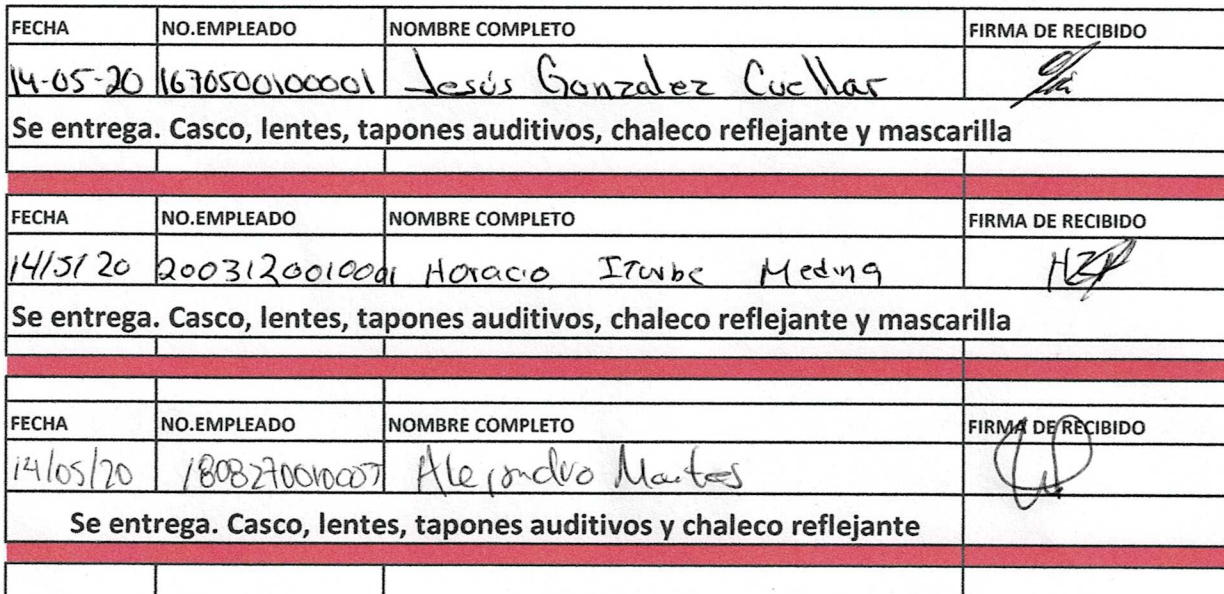 FECHA NO.EMPLEADO NOMBRE COMPLETO FIRMA DE RECIBIDO
14-05-20 1670500100001 Jesús Gonzalez Cuellar
Se entrega. Casco, lentes, tapones auditivos, chaleco reflejante y mascarilla
FECHA NO.EMPLEADO NOMBRE COMPLETO FIRMA DE RECIBIDO
14/5/20 2003120010001 Horacio Iturbe Medina
Se entrega. Casco, lentes, tapones auditivos, chaleco reflejante y mascarilla
FECHA NO.EMPLEADO NOMBRE COMPLETO FIRMA DE RECIBIDO
14/05/20 Alejandro
Se entrega. Casco, lentes, tapones auditivos y chaleco reflejante